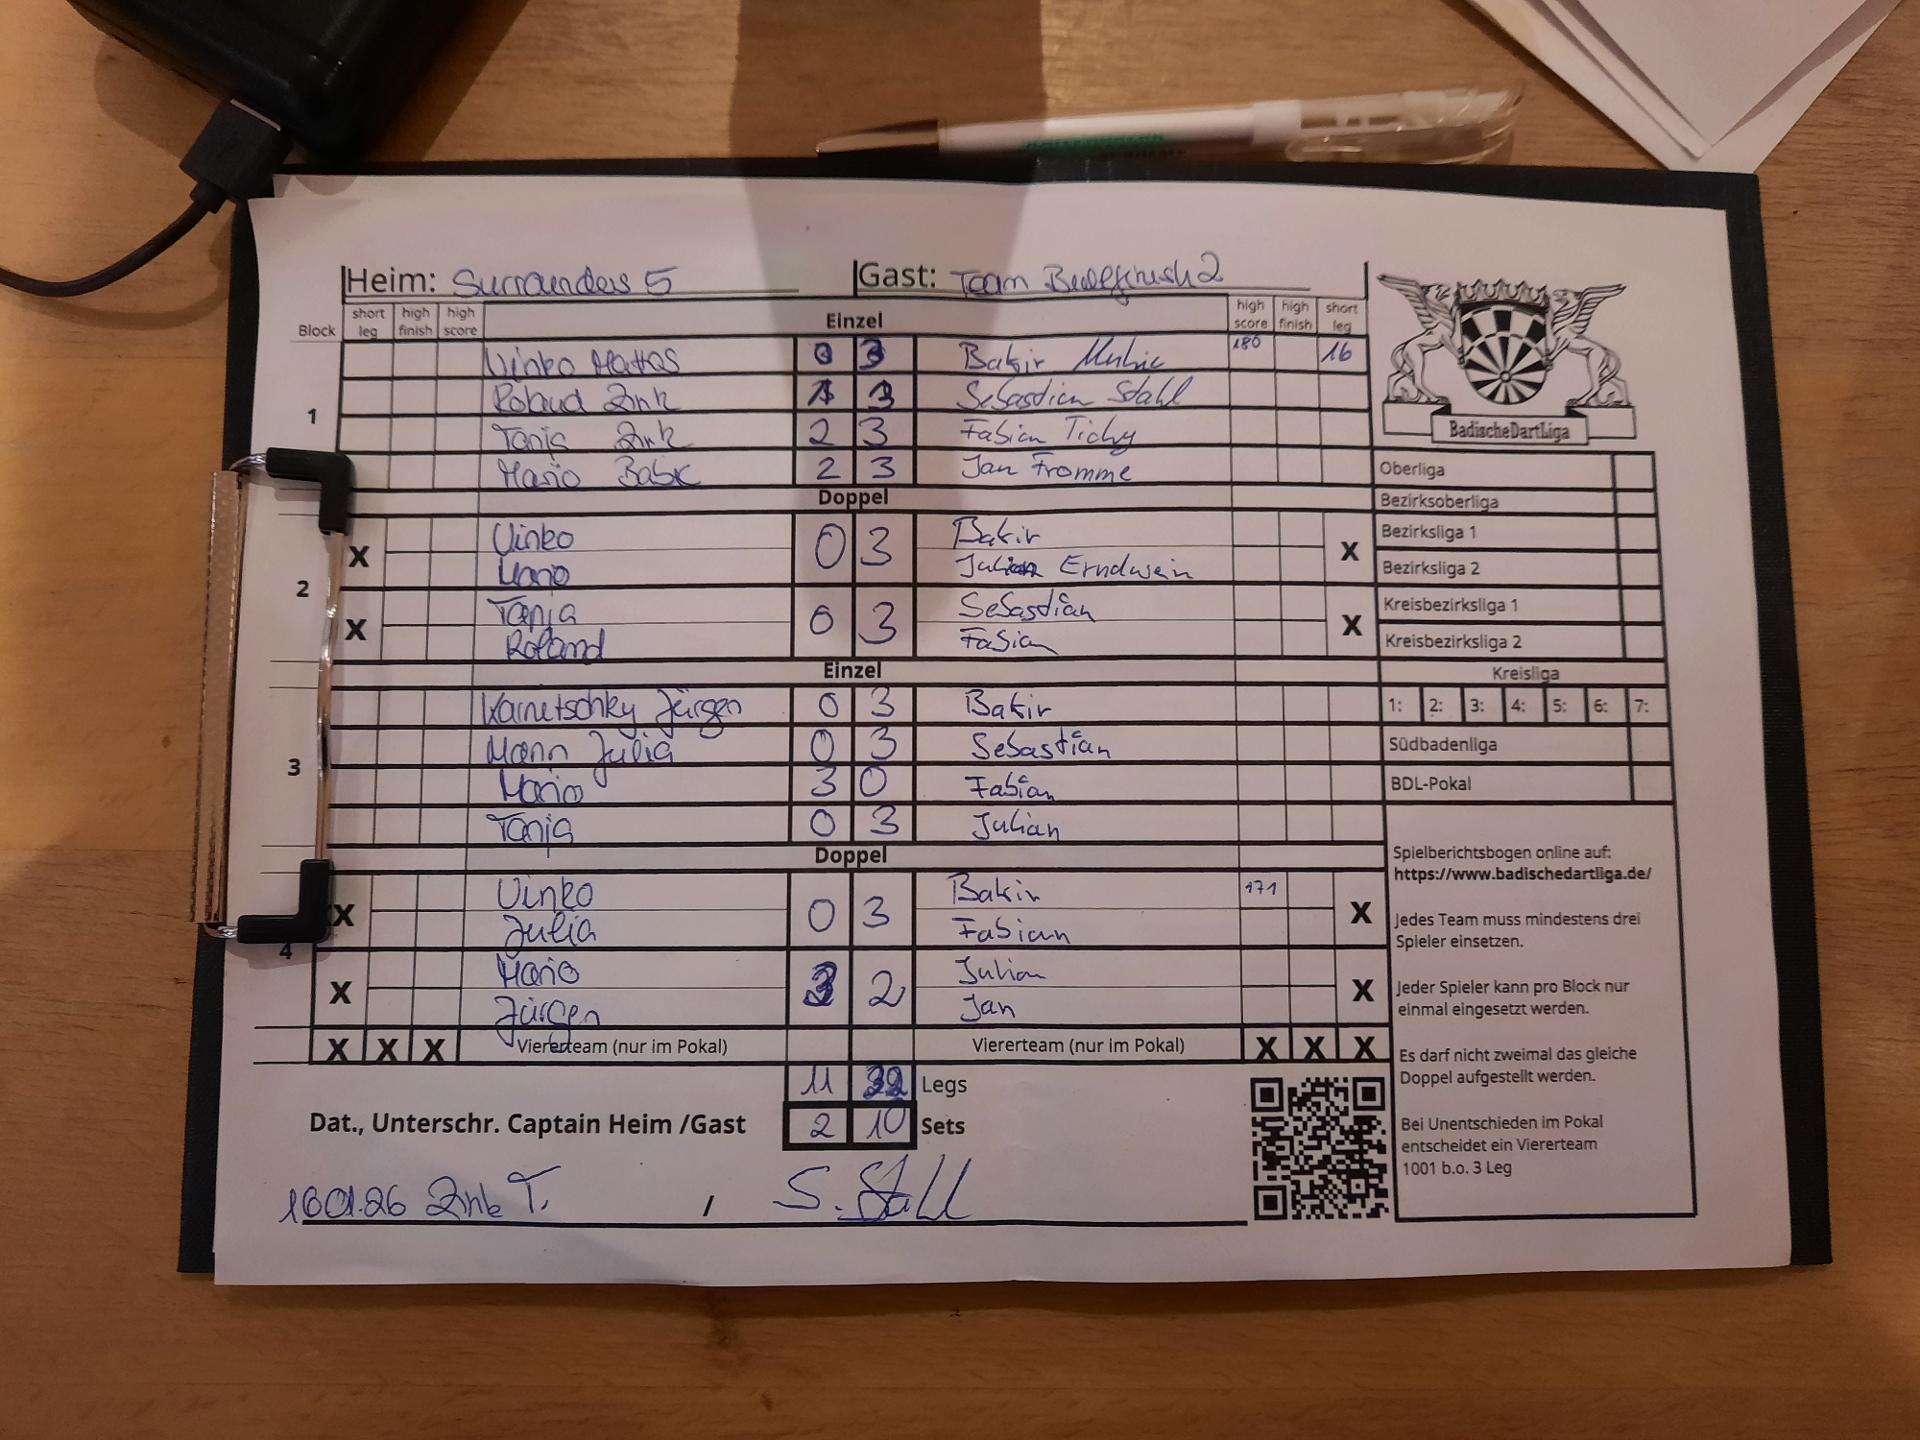 Heim: Surrounders 5 Gast: Team Bullfinish 2
Block short leg high finish high score Einzel high score high finish short leg
1
Vinko Mattas 0 3 Bakir Muhic 180 16
Roland Zink 1 3 Sebastian Stahl
Tanja Zink 2 3 Fabian Tichy
Mario Babic 2 3 Jan Fromme
Doppel
2
X Vinko 0 3 Bakir X
Mario Julian Erndwein
X Tanja 0 3 Sebastian X
Roland Fabian
Einzel
3
Karnetschky Jürgen 0 3 Bakir
Mann Julia 0 3 Sebastian
Mario 3 0 Fabian
Tanja 0 3 Julian
Doppel
4
X Vinko 0 3 Bakir 171 X
Julia Fabian
X Mario 3 2 Julian X
Jürgen Jan
X X X Viererteam (nur im Pokal) Viererteam (nur im Pokal) X X X
11 32 Legs
Dat., Unterschr. Captain Heim /Gast 2 10 Sets
16.01.26 Zink T. / S. Stahl
BadischeDartLiga
Oberliga
Bezirksoberliga
Bezirksliga 1
Bezirksliga 2
Kreisbezirksliga 1
Kreisbezirksliga 2
Kreisliga
1: 2: 3: 4: 5: 6: 7:
Südbadenliga
BDL-Pokal
Spielberichtsbogen online auf:
https://www.badischedartliga.de/
Jedes Team muss mindestens drei
Spieler einsetzen.
Jeder Spieler kann pro Block nur
einmal eingesetzt werden.
Es darf nicht zweimal das gleiche
Doppel aufgestellt werden.
Bei Unentschieden im Pokal
entscheidet ein Viererteam
1001 b.o. 3 Leg